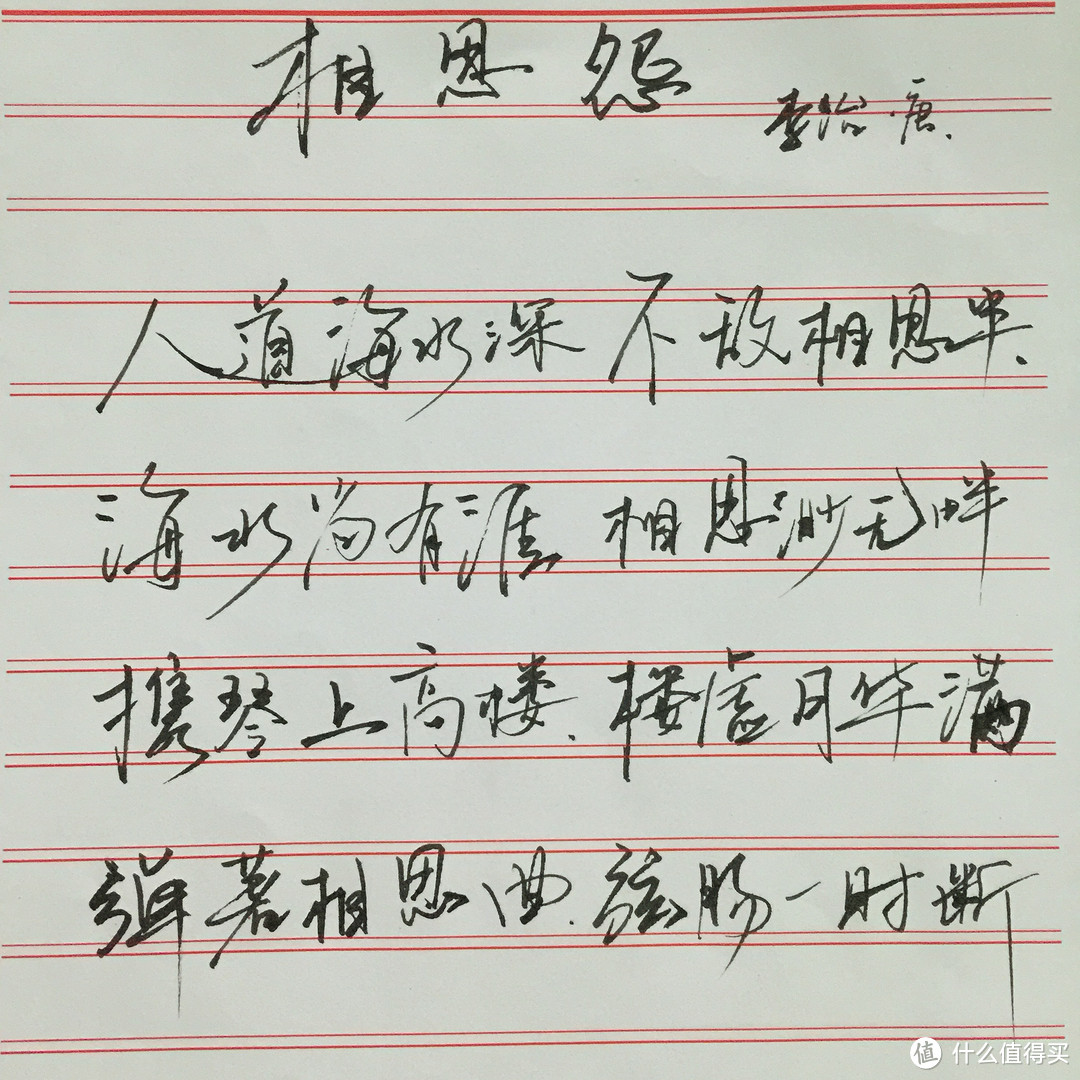 相思怨
李治·唐.
人道海水深 不敌相思半、
海水尚有涯 相思渺无畔
携琴上高楼、楼虚月华满
弹著相思曲.弦肠一时断
值 什么值得买